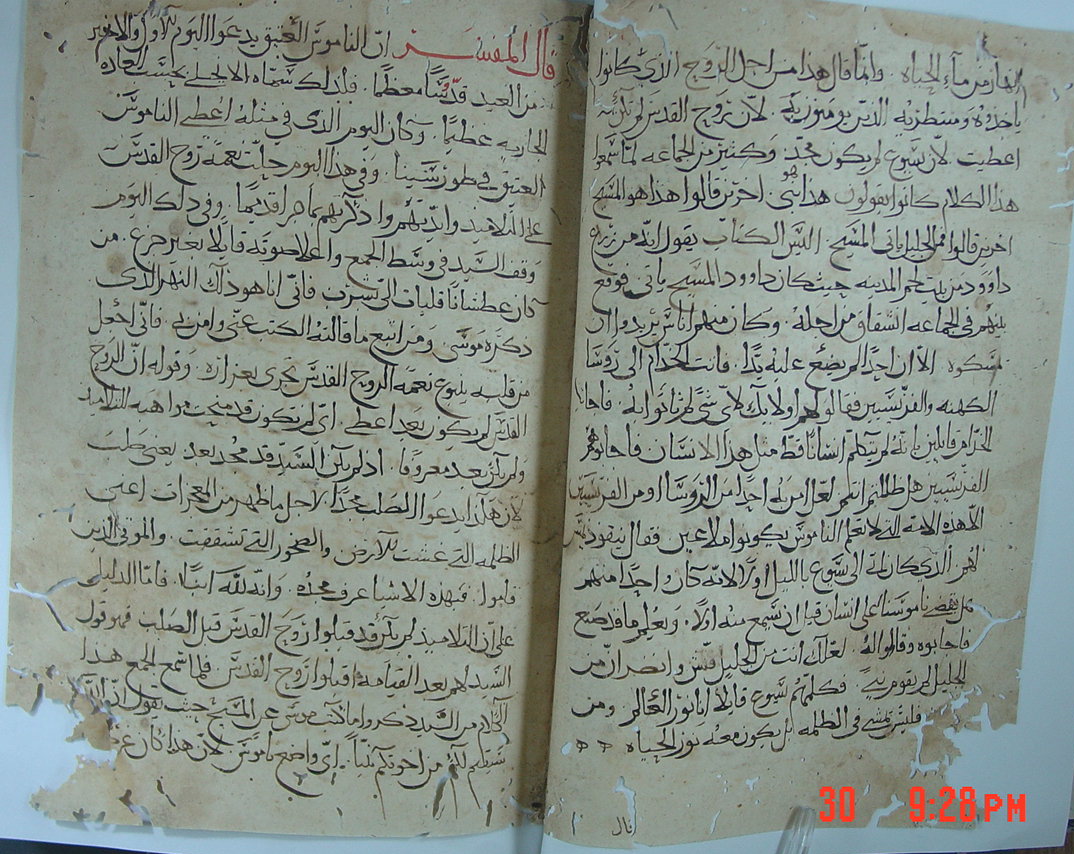 انهار من ماء الحياه . وانما قال هذا من اجل الروح الذي كانوا
ياخذوه ومنتظريه الذين يومنون به . لان روح القدس لم تكن
اعطيت لان يسوع لم يكون مجد . وكثير من الجماعه لما سمعوا
هذا الكلام كانوا يقولون هذا هو نبي . اخرين قالوا هذا هو المسيح
اخرين قالوا فمن الجليل ياتي المسيح . اليس الكتاب يقول انه من زرع
داوود ومن بيت لحم المدينه حيث كان داوود المسيح ياتي فوقع
بينهم في الجماعه انشقاق من اجله . وكان منهم اناس يريدوا ان
يمسكوه . الا ان احدا لم يضع عليه يدا . فاتت الخدام الى روسا
الكهنه والفريسيين فقالوا لهم اولايك لاي شي لم تاتوا به . فاجابوا
الخدام قايلين بانه لم يتكلم انسانا قط مثل هذا الانسان فاجابوهم
الفريسيين هل ظللتم انتم لعل امن به احدا من الروسا او من الفريسيين
الا هذه الامه التي لا تعلم الناموس يكونوا ملاعين . فقال نيقوديمس
لهم الذي كان اتى الى يسوع بالليل اولا لانه كان واحدا منهم
هل يقضي ناموسنا على انسان قبل ان يسمع منه اولا . ويعلم ما قد صنع
فاجابوه وقالوا له . لعلك انت من الجليل فتش وانضر ان من
الجليل لم يقوم نبي . فكلمهم يسوع قايلا انا نور العالم . ومن
فليس يمشي في الظلمه بل يكون معه نور الحياه
قال
قال المفسر ان الناموس العتيق يدعوا اليوم الاول والاخير
من العيد قدسا معظما . فلذلك سماه الانجيلي بحسب العاده
الجاريه عظيما . وكان اليوم الذي في مثله اعطي الناموس
العتيق في طور سينا . وفي هذا اليوم حلت نعمة روح القدس
على التلاميذ وايدتهم واذكرتهم قديما . وفي ذلك اليوم
وقف السيد في وسط الجمع واعلا صوته قايلا بغير جزع . من
كان عطشانا فليات الي يشرب فاني انا هو ذلك النهر الذي
ذكره موسى . ومن اتبع ما قالته الكتب عني وامن بي . فاني اجعل
من قلبه ينبوع نعمة الروح القدس تجري بغزاره . وقوله ان الروح
القدس لم يكون بعد اعطي . اي لم تكون قد منحت مواهبه للتلاميذ
ولم يكن بعد معروفا . اذ لم يكن السيد قد مجد بعد يعني صلب
لان هكذا يدعوا الصلب مجدا لاجل ما ظهر من المعجزات اعني
الظلمه التي غشت الارض والصخور التي تشققت . والموتى الذين
قاموا . فبهذه الاشيا عرف مجده . وانه لله ابنا . فاما الدليل
على ان التلاميذ لم يكن قد قبلوا روح القدس قبل الصلب فهو قول
السيد لهم بعد القيامه اقبلوا روح القدس . فلما سمع الجمع هذا
الكلام من السيد ذكروا ما كتب موسى عن المسيح حيث يقول ان الله
سيقيم لكم من اخوتكم نبيا . اي واضع ناموس لان هذا كان
30 9:28PM